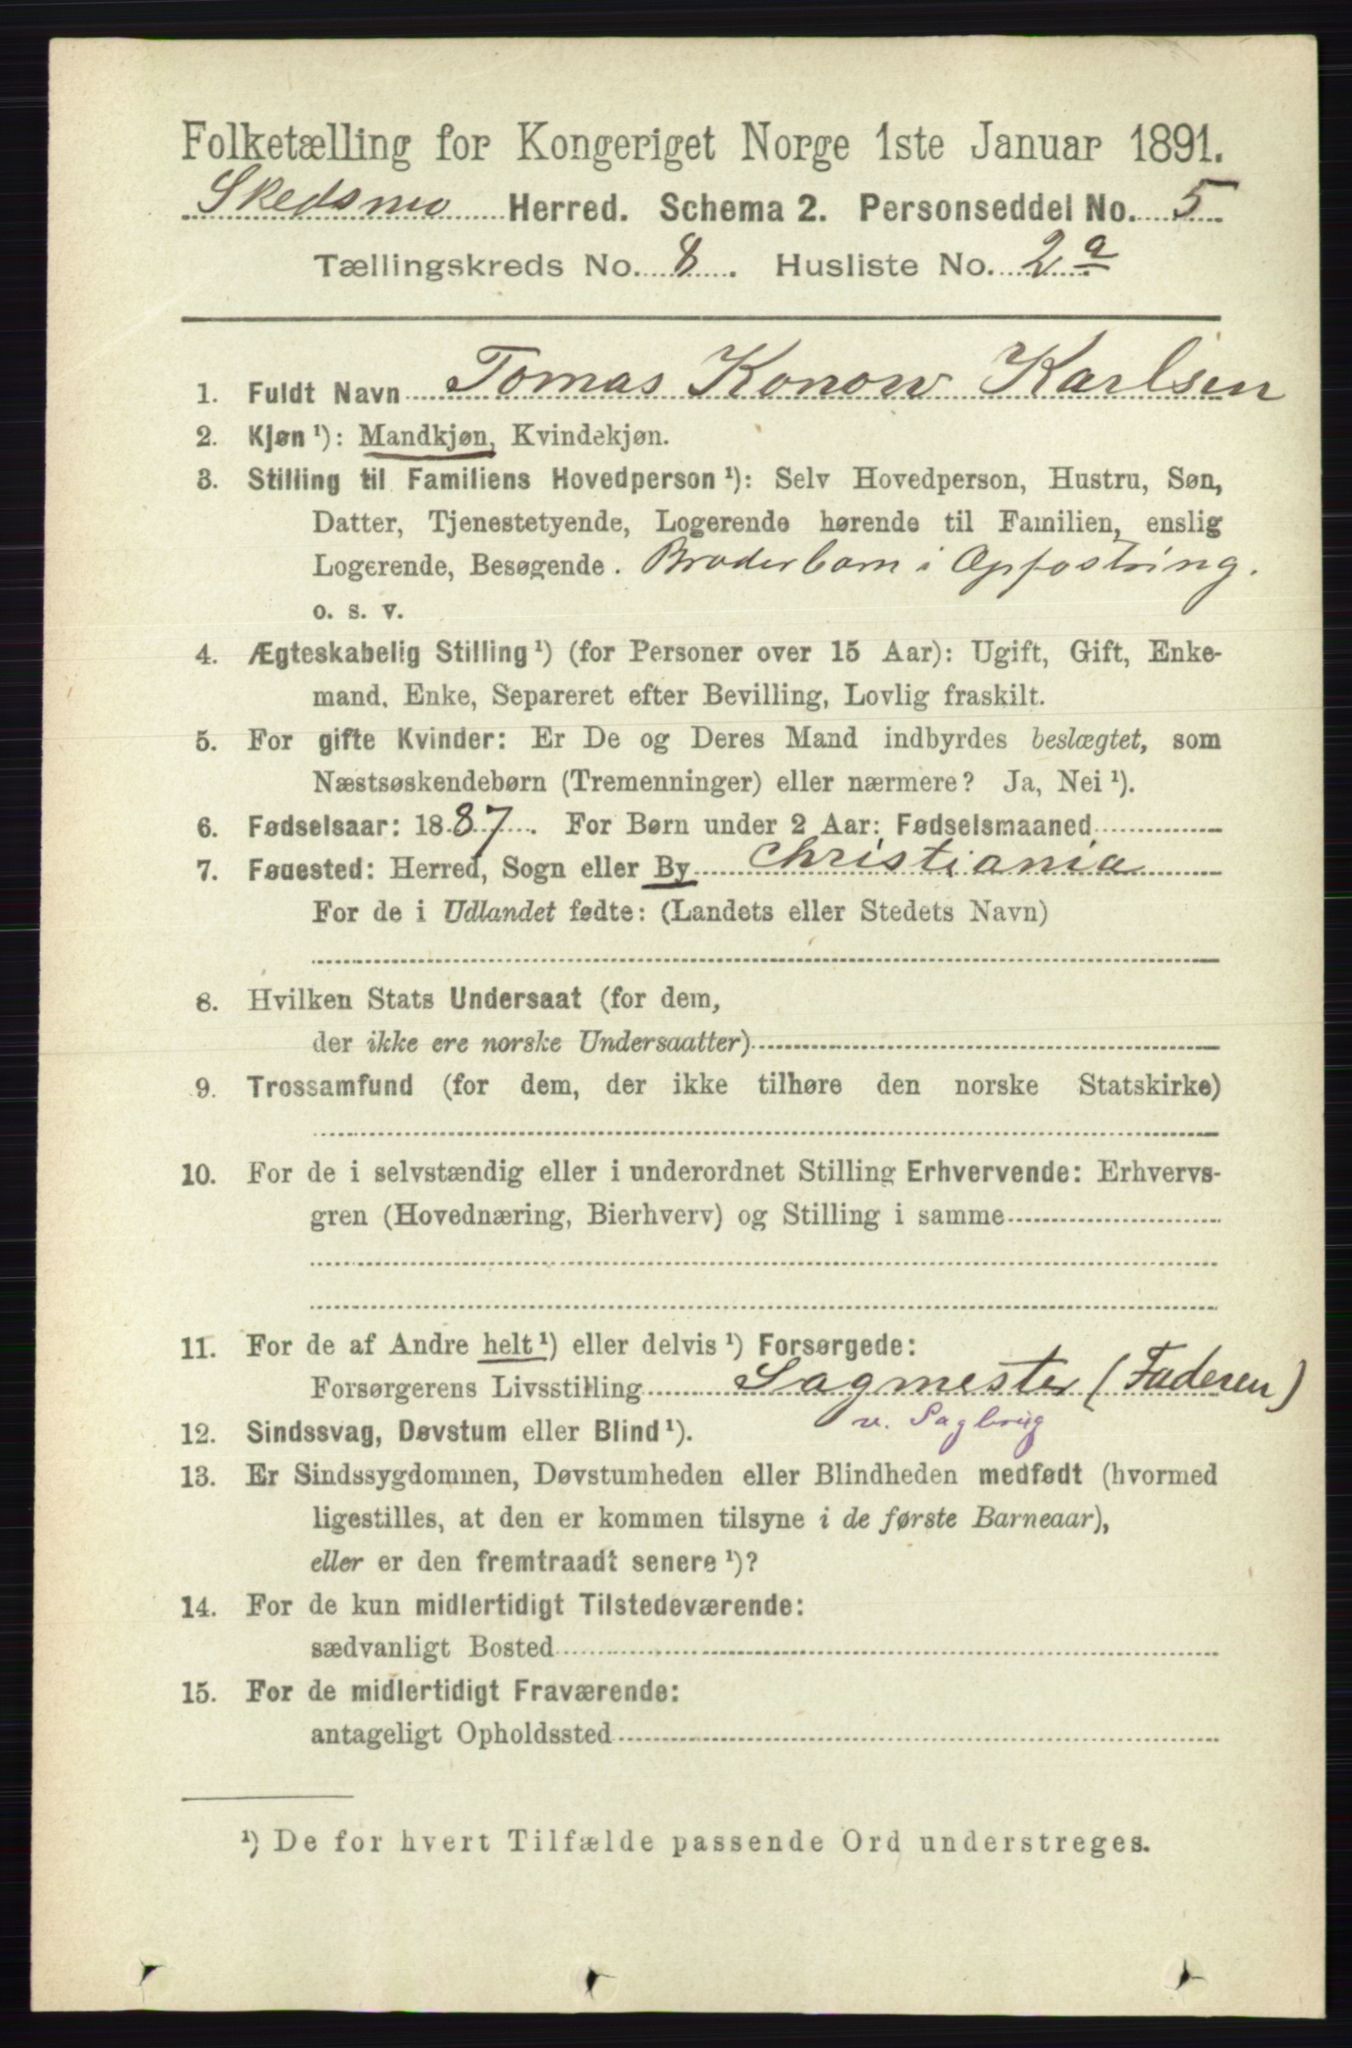 Folketælling for Kongeriget Norge 1ste Januar 1891.
Skedsmo Herred. Schema 2. Personseddel No. 5
Tællingskreds No. 8. Husliste No. 2 a
1. Fuldt Navn Tomas Konow Karlsen
2. Kjøn¹): Mandkjøn, Kvindekjøn.
3. Stilling til Familiens Hovedperson¹): Selv Hovedperson, Hustru, Søn,
Datter, Tjenestetyende, Logerende hørende til Familien, enslig
Logerende, Besøgende. Broderbarn i Opfostring.
o. s. v.
4. Ægteskabelig Stilling¹) (for Personer over 15 Aar): Ugift, Gift, Enke-
mand, Enke, Separeret efter Bevilling, Lovlig fraskilt.
5. For gifte Kvinder: Er De og Deres Mand indbyrdes beslægtet, som
Næstsøskendebørn (Tremenninger) eller nærmere? Ja, Nei¹).
6. Fødselsaar: 1887. For Børn under 2 Aar: Fødselsmaaned
7. Fødested: Herred, Sogn eller By Christiania
For de i Udlandet fødte: (Landets eller Stedets Navn)
8. Hvilken Stats Undersaat (for dem,
der ikke ere norske Undersaatter)
9. Trossamfund (for dem, der ikke tilhøre den norske Statskirke)
10. For de i selvstændig eller i underordnet Stilling Erhvervende: Erhvervs-
gren (Hovednæring, Bierhverv) og Stilling i samme
11. For de af Andre helt¹) eller delvis¹) Forsørgede:
Forsørgerens Livsstilling Sagmester (Faderen)
v. Sagbrug
12. Sindssvag, Døvstum eller Blind¹).
13. Er Sindssygdommen, Døvstumheden eller Blindheden medfødt (hvormed
ligestilles, at den er kommen tilsyne i de første Barneaar),
eller er den fremtraadt senere¹)?
14. For de kun midlertidigt Tilstedeværende:
sædvanligt Bosted
15. For de midlertidigt Fraværende:
antageligt Opholdssted
¹) De for hvert Tilfælde passende Ord understreges.